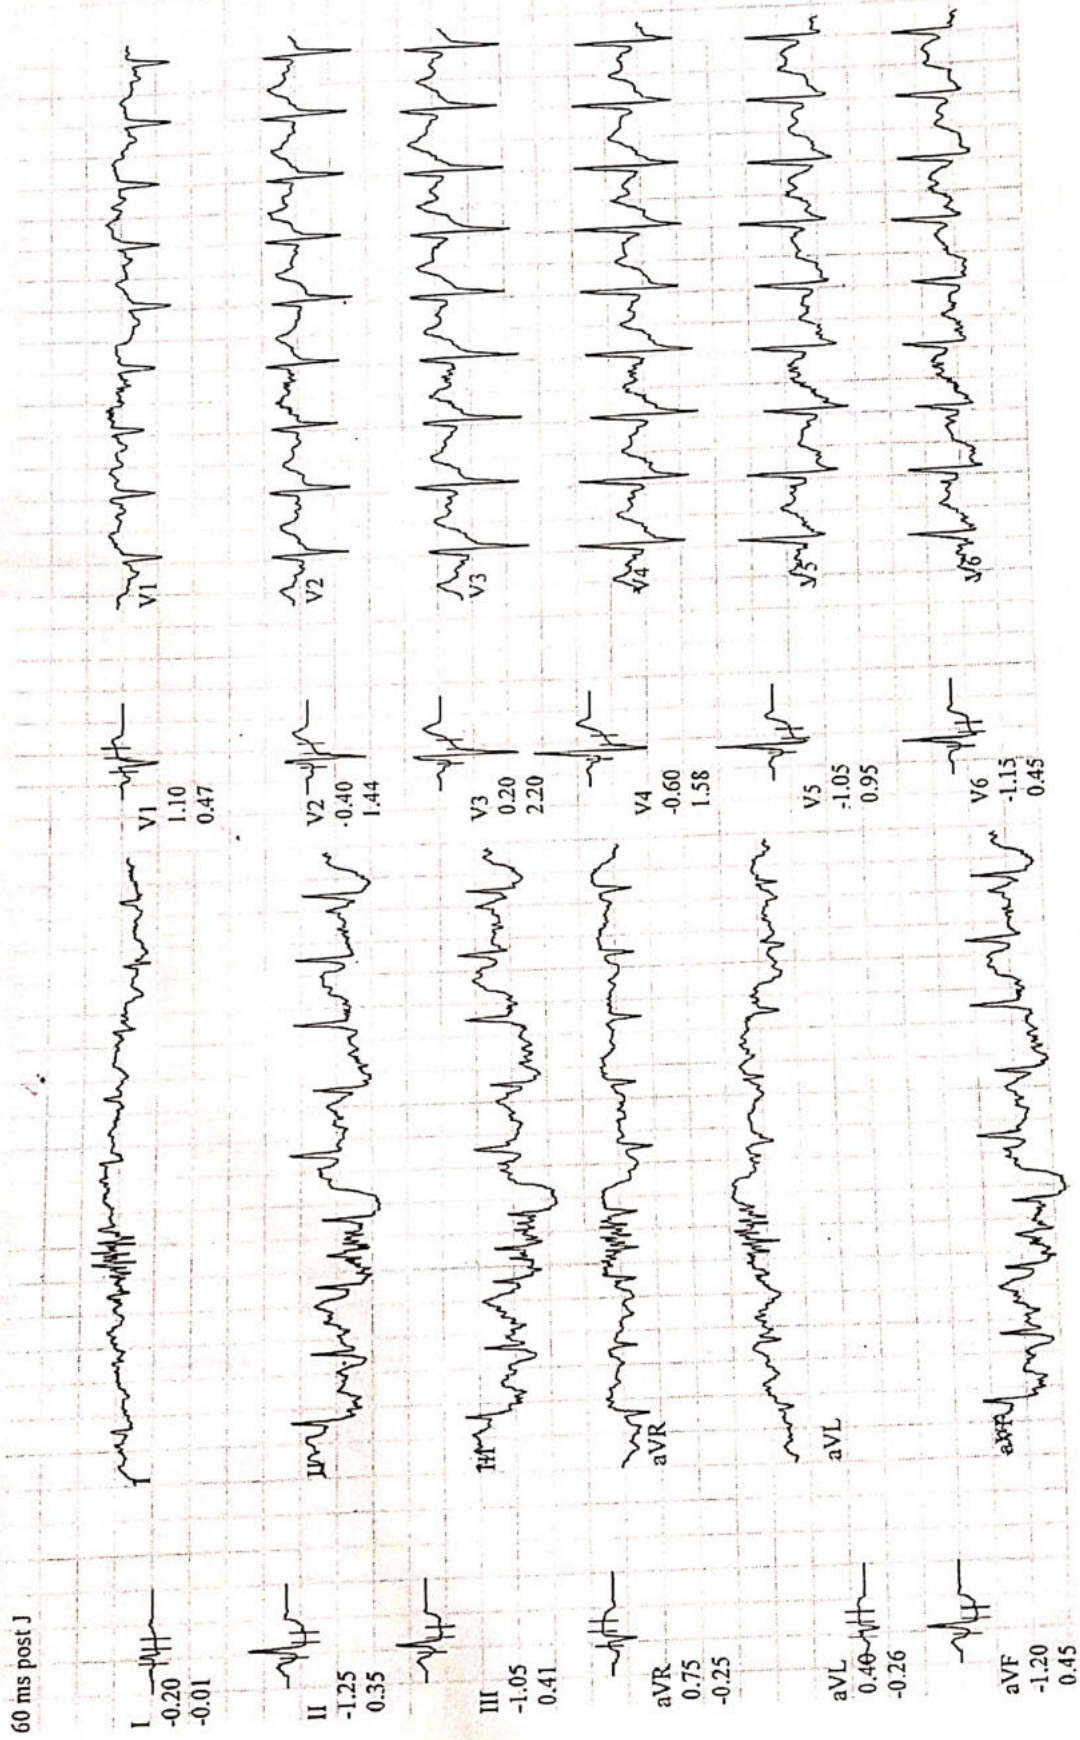 60 ms post J
I
-0.20
-0.01
II
-1.25
0.35
III
-1.05
0.41
aVR
0.75
-0.25
aVL
0.40
-0.26
aVF
-1.20
0.45
I
II
III
aVR
aVL
aVF
V1
1.10
0.47
V2
-0.40
1.44
V3
0.20
2.20
V4
-0.60
1.58
V5
-1.05
0.95
V6
-1.15
0.45
V1
V2
V3
V4
V5
V6